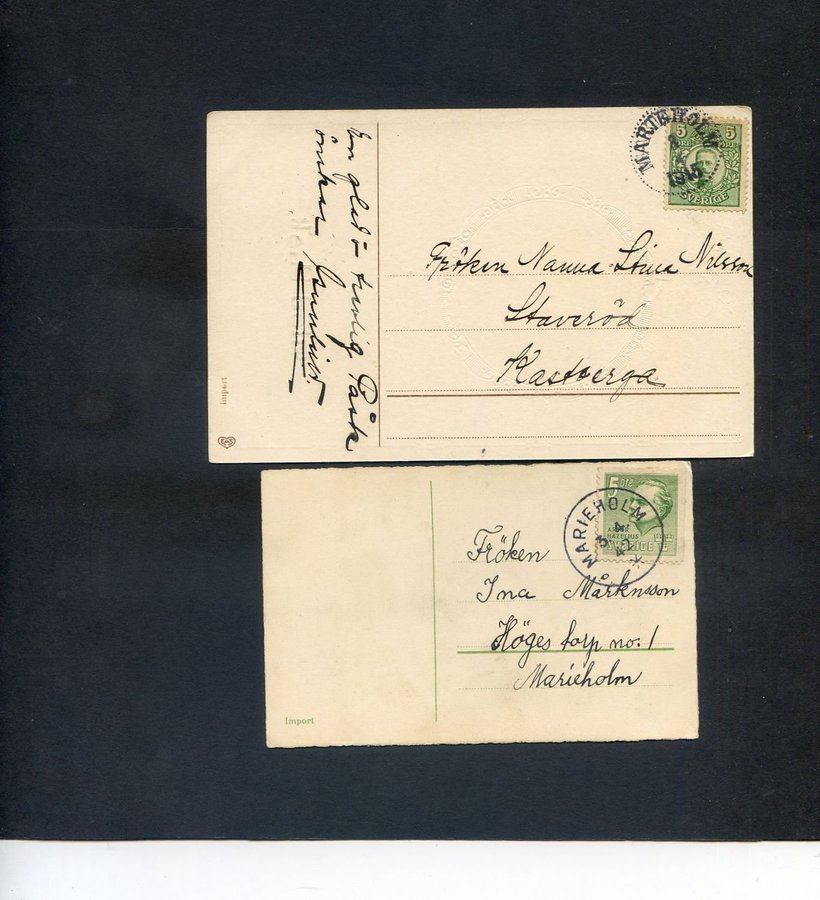 En glad o trevlig Påsk
önskar
Import
MARIEHOLM
1915
5 5
SVERIGE
Fröken Nanna-Stina Nilsson
Staveröd
Kastberga
5 öre
ARTUR
HAZELIUS
SVERIGE
MARIEHOLM
3 4
42
Fröken
Ina Mårknsson
Höges torp no: 1
Marieholm
Import